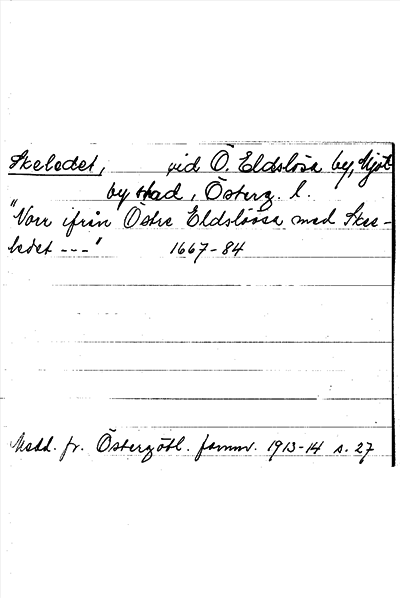 Skeledet, vid Ö. Eldslösa by, Mjöl-
by stad, Österg. l.
"Norr ifrån Östre Eldslössa med Skee-
ledet ---" 1667-84
Medd. fr. Östergötl. fornmv. 1913-14 s. 27